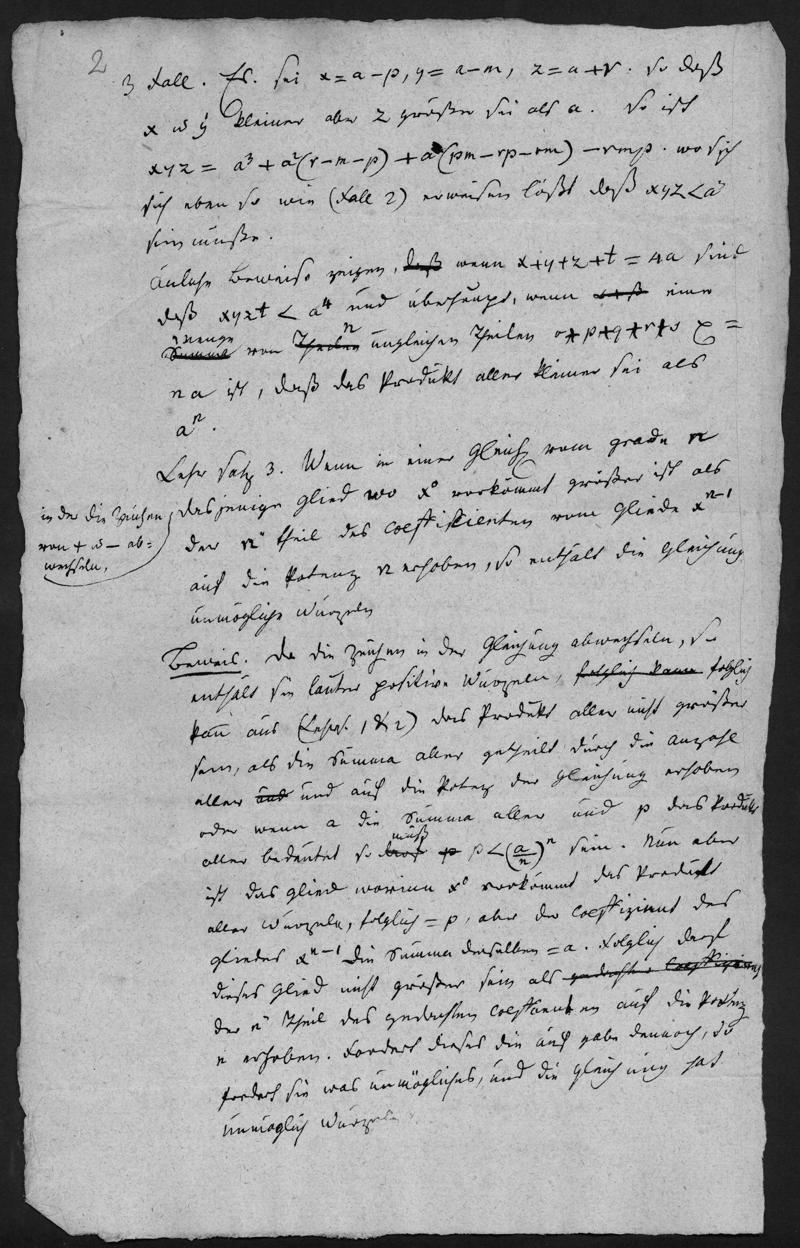 2
3 Fall. Es sei x = a – p, y = a – m, z = a + r. so daß
x u y kleiner aber z größer sei als a. So ist
xyz = a³ + a²(r – m – p) + a(pm – rp – rm) – rmp. wo sich
sich eben so wie (Fall 2) erweisen läßt daß xyz < a³
sein müße.
Änliche Beweise zeigen, daß wenn x+y+z+t = 4a sind
daß xyzt < a⁴ und überhaupt, wenn eine
Menge
Summe von Theilen n ungleichen Theilen o+p+q+r+s =
na ist, daß das Produkt aller kleiner sei als
aⁿ.
Lehrsatz 3. Wenn in einer Gleich vom grade n
dasjenige Glied wo x⁰ vorkömmt größer ist als
in der die Zeichen
von + u – ab=
wechseln,
der n theil des Coeffizienten vom Gliede xⁿ⁻¹
auf die Potenz n erhoben, so enthält die Gleichung
unmögliche Wurzeln
Beweis. Da die Zeichen in der Gleichung abwechseln, so
enthält sie lauter positive Wurzeln, folglich kann folglich
kan aus (Lehrs. 1 & 2) das Produkt aller nicht größer
sein, als die Summa aller getheilt durch die anzahl
aller und und auf die Potenz der Gleichung erhoben
oder wenn a die Summa aller und p das Produkt
muß
aller bedeutet so darf p p < (a/n)ⁿ sein. Nun aber
ist das Glied worinn x⁰ vorkömmt das Produkt
aller Wurzeln, folglich = p, aber der Coeffizient des
Gliedes xⁿ⁻¹ die Summa derselben = a. Folglich darf
dieses Glied nicht größer sein als gedachter Coeffizient
der n Theil des gedachten Coeffienten auf die Potenz
n erhoben. Fordert dieses die aufgabe dennoch, so
fordert sie was unmögliches, und die Gleichung hat
unmöglich Wurzeln